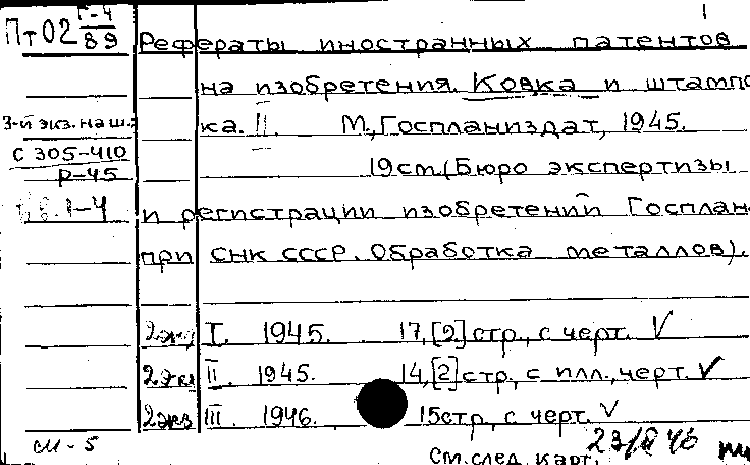 Пт02 Г-4/89
Рефераты иностранных патентов
на изобретения. Ковка и штампо
3-й экз. на ш.:
ка. II. М., Госпланиздат, 1945.
с 305-410
19см. (Бюро экспертизы
р-45
и регистрации изобретений Госплан
при СНК СССР. Обработка металлов).
2экз I. 1945. 17,[2] стр., с черт. V
2экз II. 1945. 14,[2] стр., с илл., черт. V
2экз III. 1946. 15стр., с черт. V
см-5
См. след. карт.